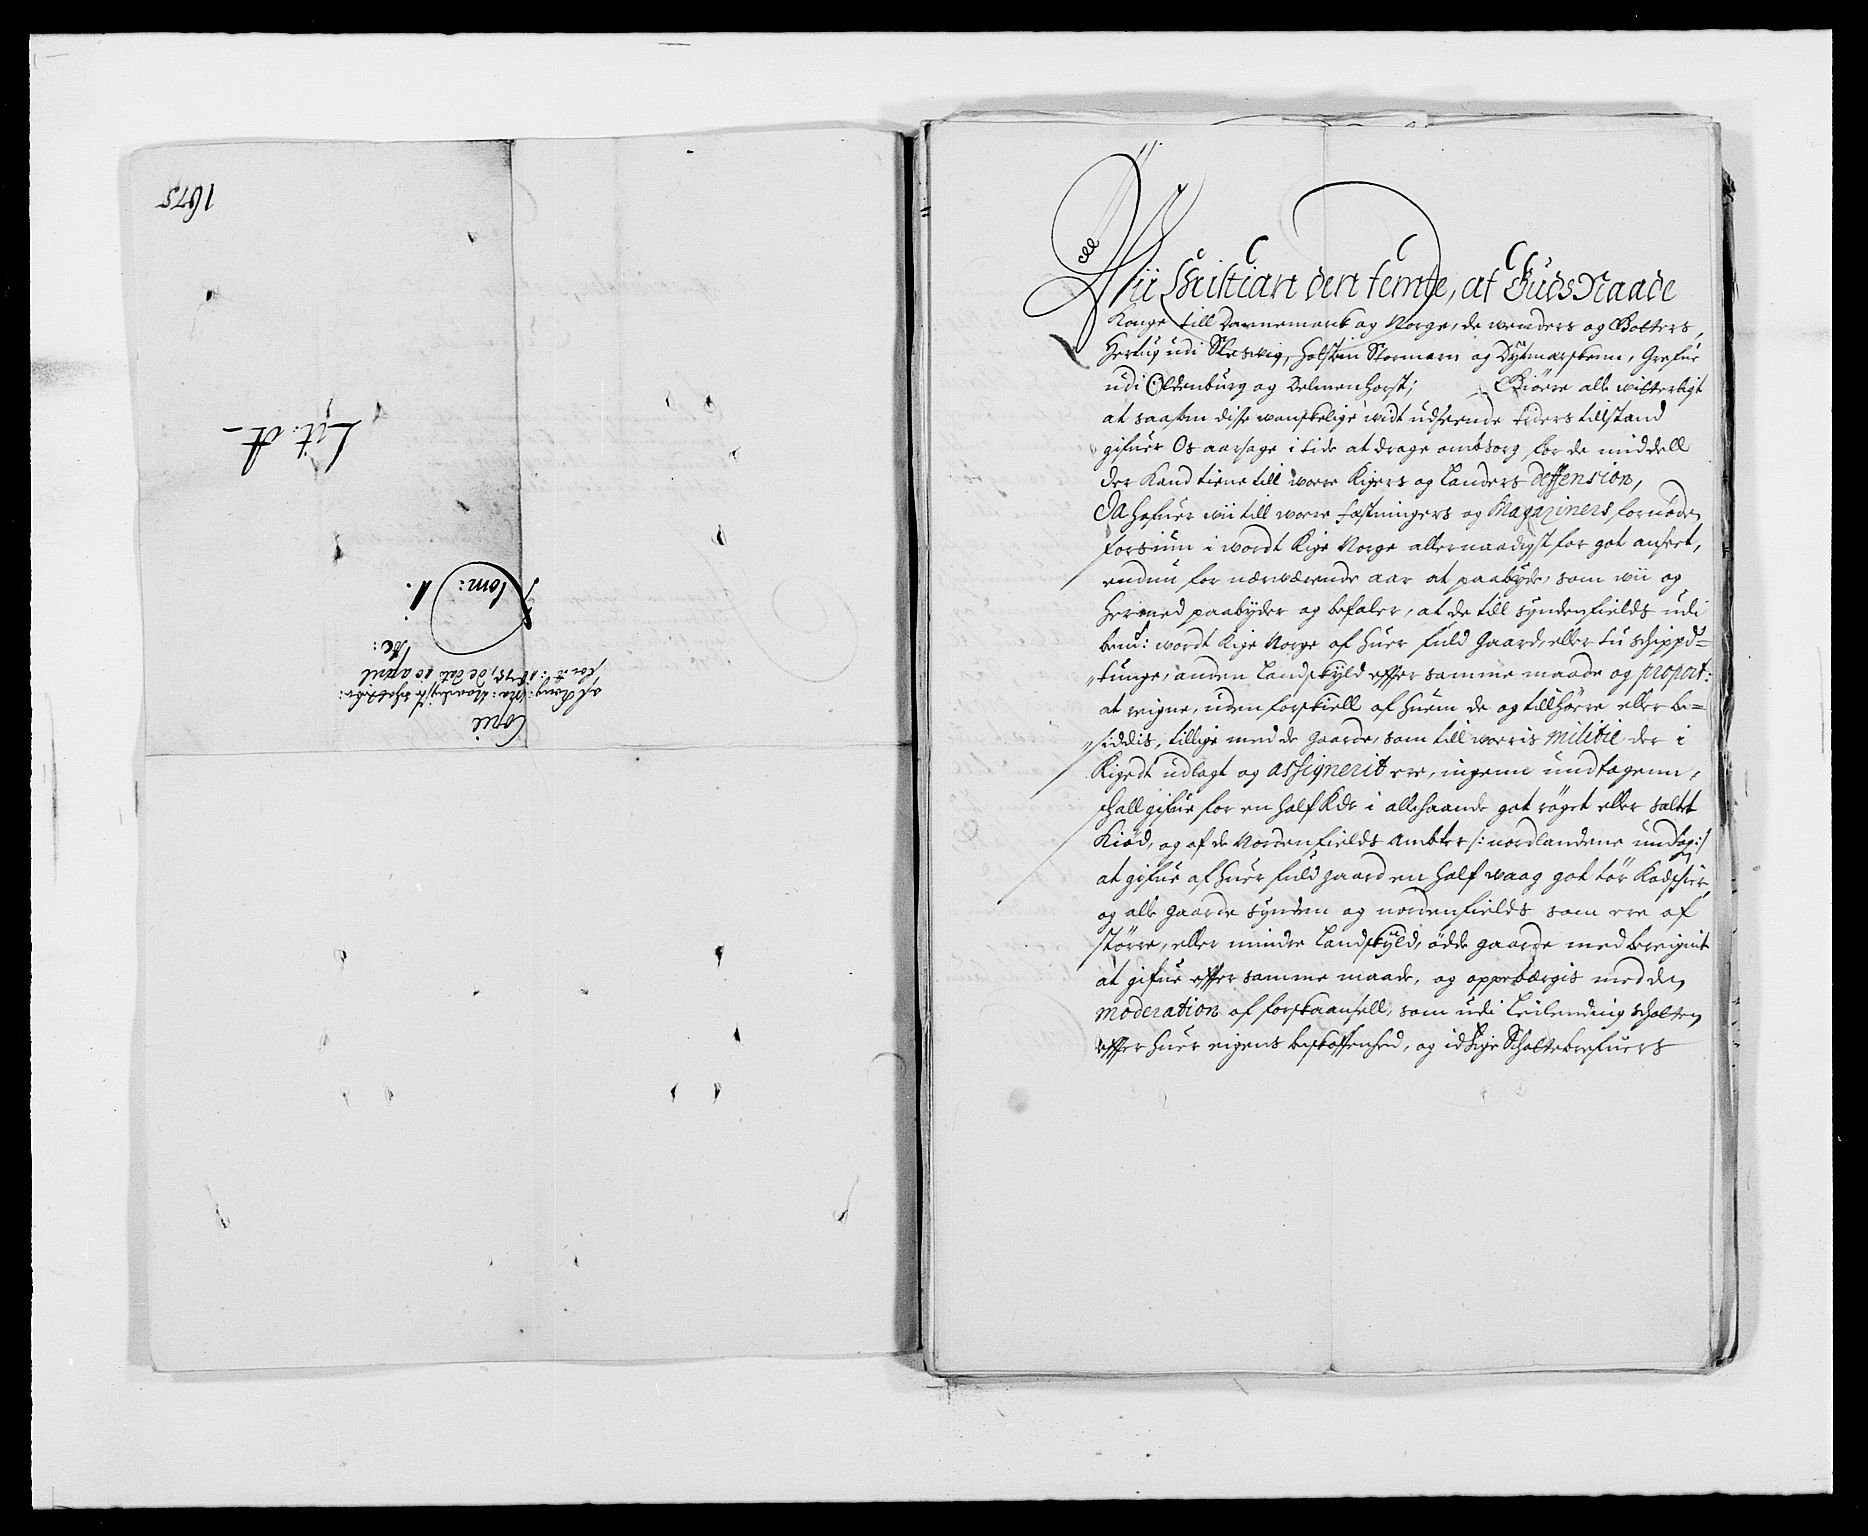 1675
Lit. A
Nom: 1.
Copie
af Kong: Ma: Naadigste
for Ao: 1675, de dato 10 april
Wii Christian den femte, af Guds Naade
Konge till Dannemark og Norge, de wenders og Gotters,
Hertug udi Sleswig, Holsten Stormarn og Dytmarsken, Grefue
udi Oldenburg og Delmenhorst; Giøre alle witterligt
at saasom disse wanskelige widt udseende tiders tillstand
gifuer Os aarsage i tide at drage ombsorg for de middell
der kand tiene till worre Rigers og Landers deffension,
Da hafuer wii till worre fæstningers og Magaziners fornøden
forsiun i wordt Rige Norge allernaadigst for got anseet,
endnu for nærwærende aar at paabyde, som wii og
hermed paabyder og befaler, at de till Syndenfields udi
bem:t wordt Rige Norge af huer fuld Gaard, eller tu schippd=
tunge, anden Landskyld effter samme maade og proport:
at reigne, uden forskiell af huem de og tillhører eller be=
siddis, tillige med de gaarde, som till worris militie der i
Riged udlagt og assignerit ere, ingenn undtagenn,
schall gifue for en half Rdr i allehaande got røget eller saltet
Kiød, og af de Nordenfields Ambter /: nordlandene undtag:/
at gifue af huer fuld gaard en half waag got tør Rodschier,
og alle gaarde synden og nordenfields som ere af
større, eller mindre Landskyld, ødde gaarde med bereignit
at gifue effter samme maade, og oppebærgis med den
moderation af forskaansell, som udi Leilending schatten
effter huer eigens beskaffenhed, og idtzige Schattebrefuers